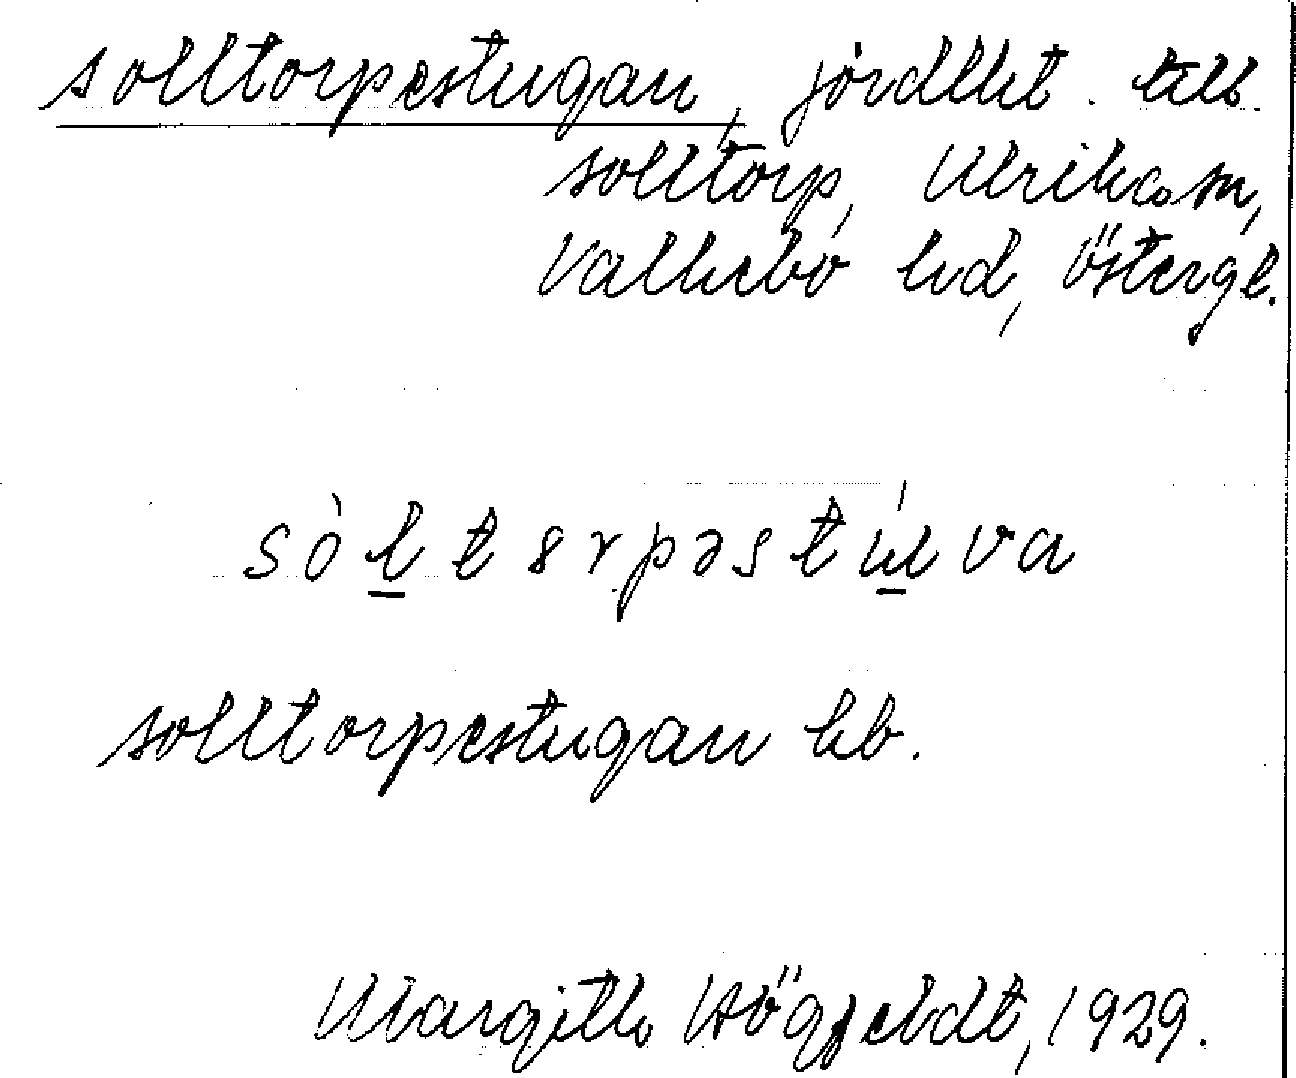 solltorpestugan, jordlht. till
solltorp, Ulrika sn,
Valkebo hd, Östergl.
sòltərpəstúva
solltorpestugan hb.
Margith Högfeldt, 1929.